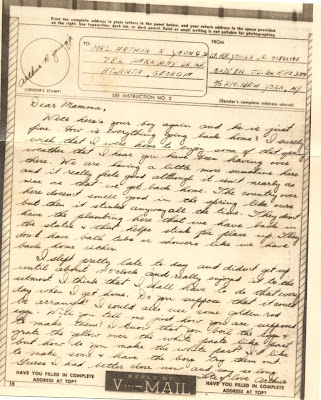 Print the complete address in plain letters in the panel below, and your return address in the space provided on the right. Use typewriter, dark ink, or dark pencil. Faint or small writing is not suitable for photographing.
TO
FROM
MRS. ARTHUR R. YOUNG
ATLANTA GEORGIA
Arthur R. Young
(CENSOR'S STAMP)
SEE INSTRUCTION NO. 2
(Sender's complete address above)
Dear Mamma,
Well here's your boy again and he is just
fine. How is everything going back home. I surely
wish that I were home to enjoy some of this
weather that I hear you have been having over
there. We are having a little more sunshine here
and it really feels good although it isn't nearly as
nice as that we got back home. The country over
here doesn't smell good in the spring like ours
but then it smells anyway all the time. They don't
have the plumbing here that we have back in
the states & that helps stink the place up. They
don't have bath tubs or showers like we have
back home either.
I slept pretty late to day and didn't get up
until about 10 o'clock and really enjoyed it to the
utmost. I think that I shall have to do that every
day when I get home. Do you suppose that it could
be arranged. I could also use some golden rod
eggs. Will you tell me just how you are supposed
to make them? I know that you boil the eggs &
grate the yellow over the white paste like
but how do you make the white past. I'd like
to make some & have the boys try them
unless I had better close now and say so long
Arthur
HAVE YOU FILLED IN COMPLETE
ADDRESS AT TOP?
REPLY BY
V···—MAIL
HAVE YOU FILLED IN COMPLETE
ADDRESS AT TOP?